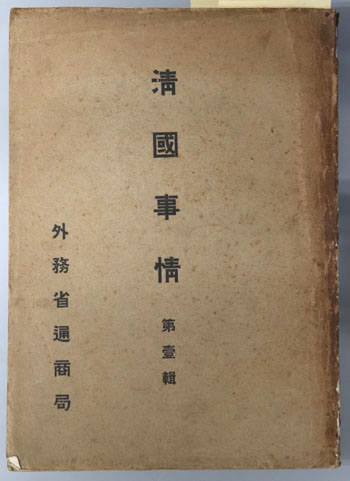 清國事情 第壹輯
外務省通商局